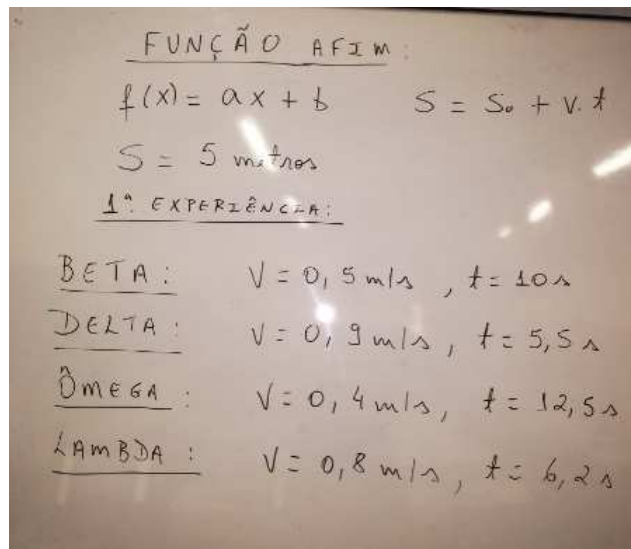 FUNÇÃO AFIM:
f(x) = ax + b S = S₀ + v.t
S = 5 metros
1ª EXPERIÊNCIA:
BETA: V = 0,5 m/s, t = 10 s
DELTA: V = 0,9 m/s, t = 5,5 s
ÔMEGA: V = 0,4 m/s, t = 12,5 s
LAMBDA: V = 0,8 m/s, t = 6,2 s